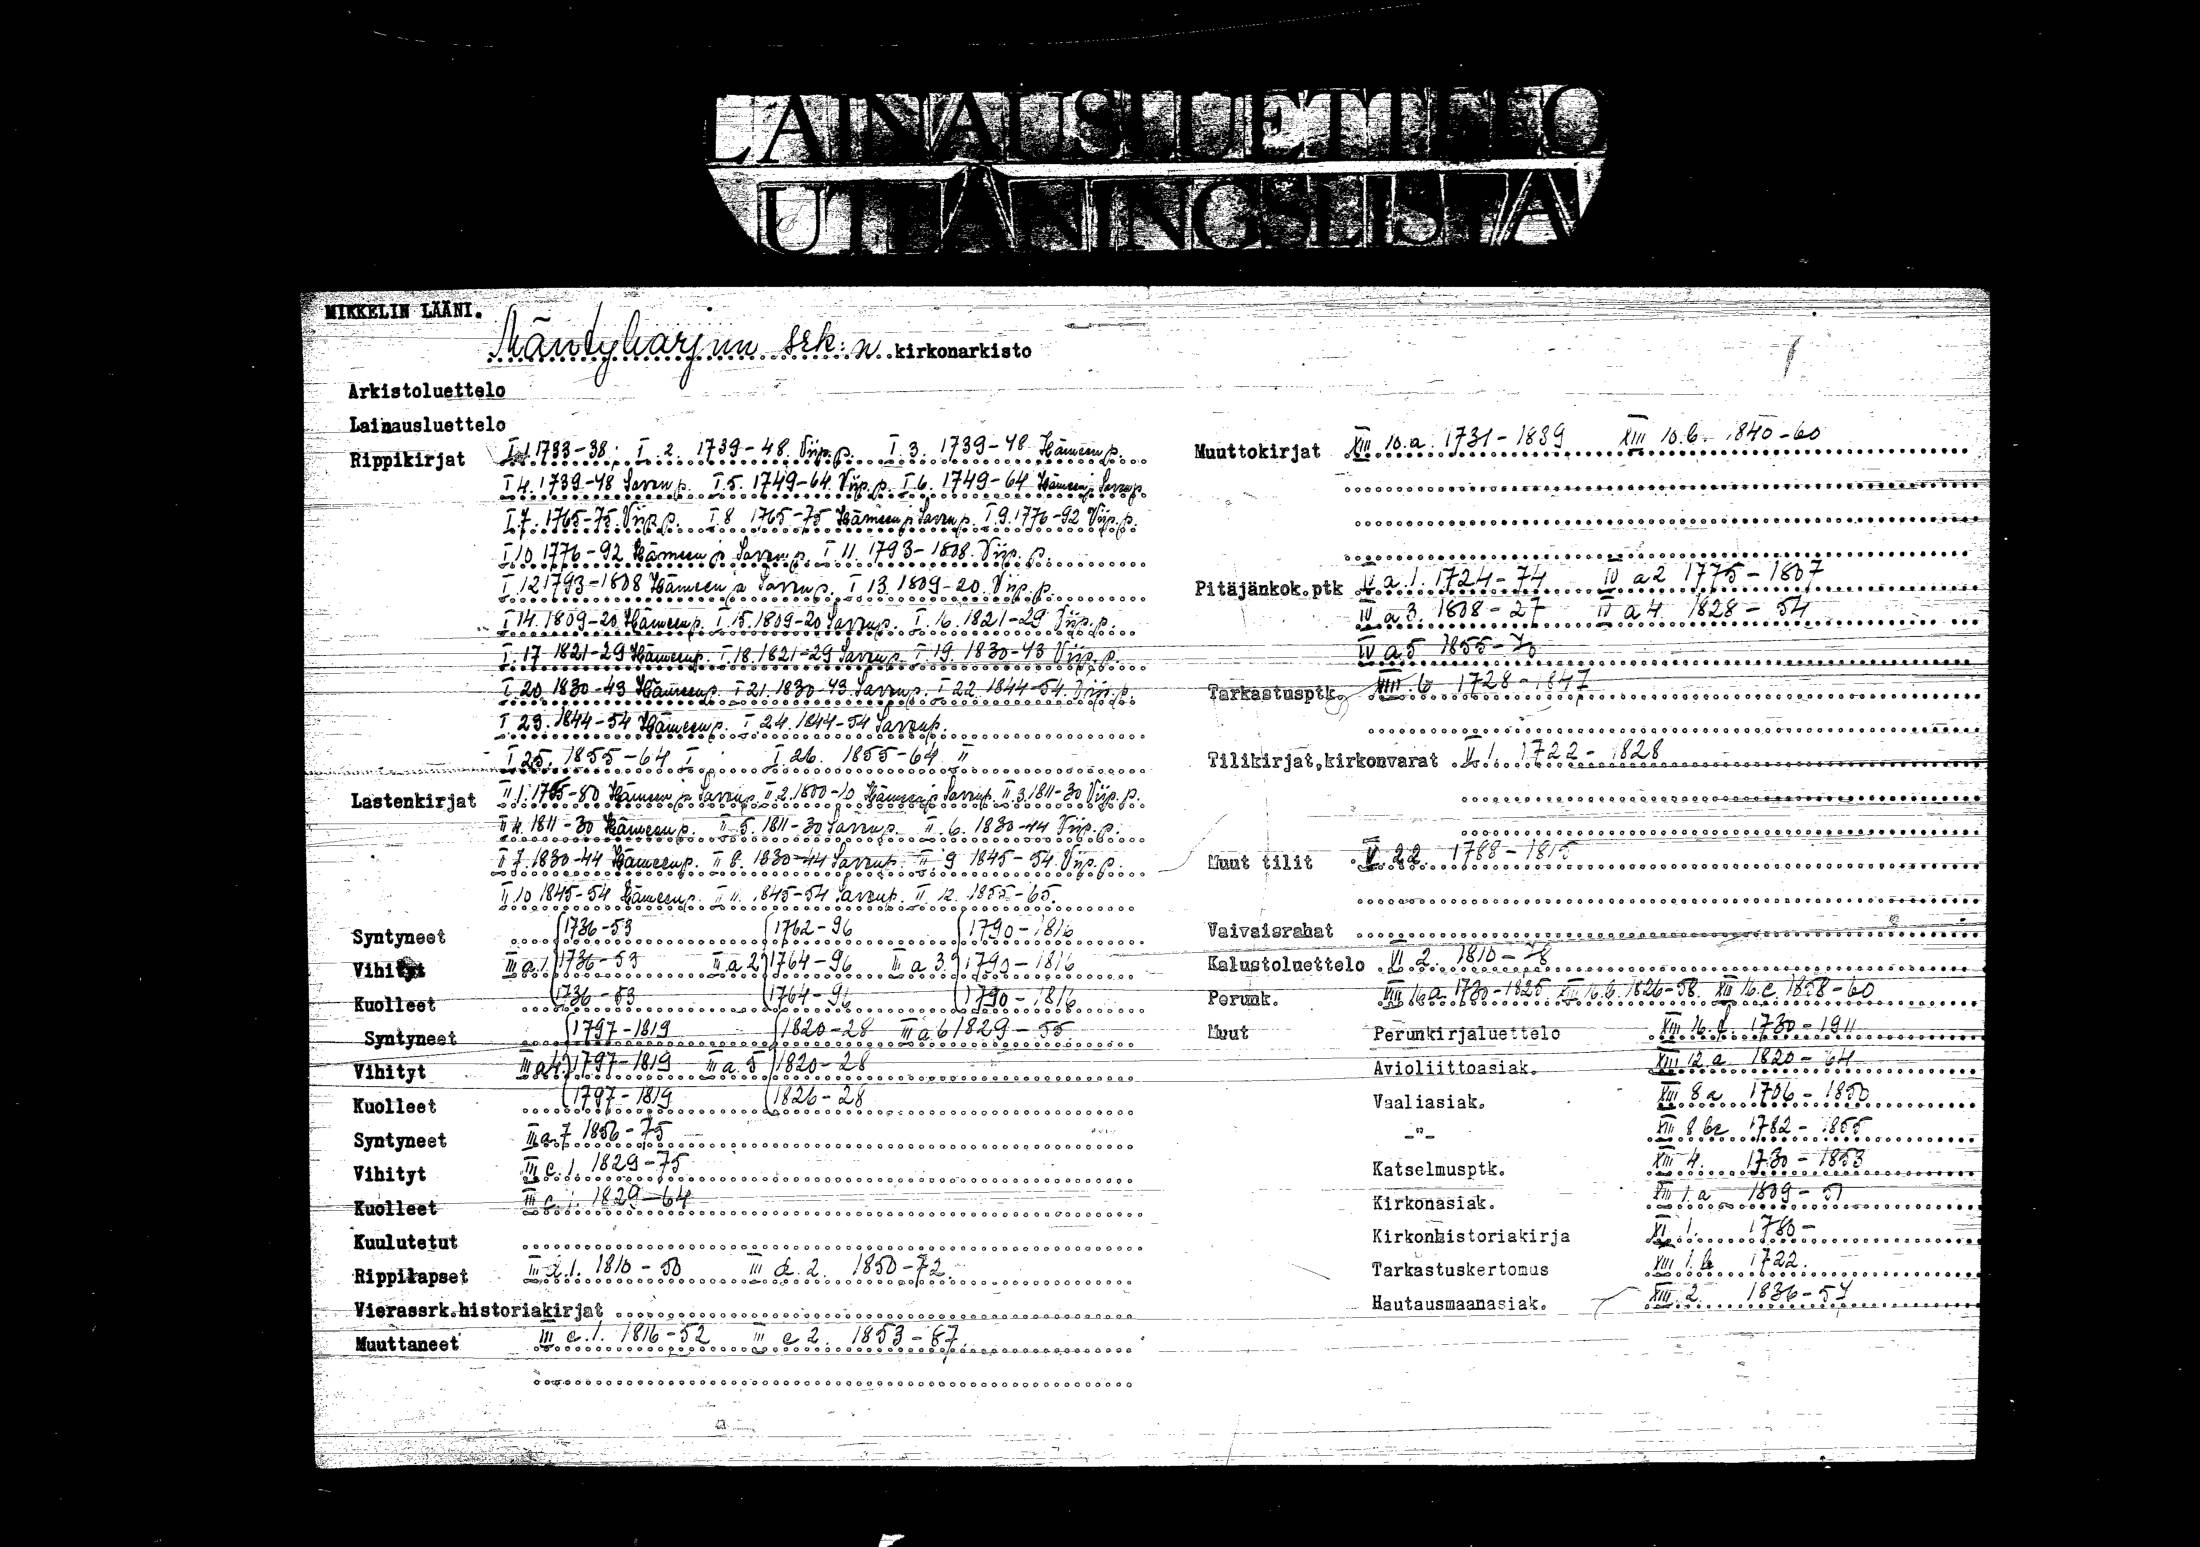 LAINAUSLUETTELO
UTLÅNINGSLISTA
MIKKELIN LÄÄNI.
Mäntyharjun srk:n kirkonarkisto
Arkistoluettelo
Lainausluettelo
Rippikirjat I.1.1733-38; I.2. 1739-48. Viip.p. I.3. 1739-48 Hämeenp.
I 4. 1739-48 Savon p. I.5. 1749-64. Viip.p. I.6. 1749-64 Hämeen ja Savon p.
I.7. 1765-75. Viip.p. I.8 1765-75 Hämeen ja Savon p. I.9. 1776-92 Viip.p.
I 10 1776-92 Hämeen ja Savon p. I 11. 1793-1808. Viip.p.
I 12 1793-1808 Hämeen ja Savon p. I 13. 1809-20. Viip.p.
I 14. 1809-20 Hämeenp. I.15. 1809-20 Savonp. I.16. 1821-29 Viip.p.
I.17 1821-29 Hämeenp. I.18. 1821-29 Savonp. I.19. 1830-43 Viip.p.
I.20. 1830-43 Hämeenp. I 21. 1830-43. Savonp. I 22. 1844-54. Viip.p.
I 23. 1844-54 Hämeenp. I 24. 1844-54 Savonp.
I 25. 1855-64 I I 26. 1855-64 II
Lastenkirjat II 1. 1765-80 Hämeen ja Savonp. II 2. 1800-10 Hämeen ja Savonp. II 3. 1811-30 Viip.p.
II 4. 1811-30 Hämeenp. II 5. 1811-30 Savonp. II 6. 1830-44 Viip.p.
II 7. 1830-44 Hämeenp. II 8. 1830-44 Savonp. II 9 1845-54. Viip.p.
II 10 1845-54 Hämeenp. II 11. 1845-54 Savonp. II 12. 1855-65.
Syntyneet 1736-53 1762-96 1790-1816
Vihityt III a.1. 1736-53 II a 2 1764-96 III a 3. 1790-1816
Kuolleet 1736-53 1764-96 1790-1816
Syntyneet 1797-1819 1820-28 III a 6 1829-55
Vihityt III a 4. 1797-1819 III a 5 1820-28
Kuolleet 1797-1819 1826-28
Syntyneet III a.7 1856-75
Vihityt III c.1. 1829-75
Kuolleet III c.1. 1829-64
Kuulutetut
Rippilapset III d.1. 1810-50 III d.2. 1850-72.
Vierassrk.historiakirjat
Muuttaneet III e.1. 1816-52 III e 2. 1853-67.
Muuttokirjat XIII 10.a. 1731-1839 XIII 10.b. 1840-60
Pitäjänkok.ptk IV a.1. 1724-74 IV a 2 1775-1807
IV a 3. 1808-27 IV a 4. 1828-54
IV a 5 1855-70
Tarkastusptk. VIII.b 1728-1847
Tilikirjat,kirkonvarat V.1. 1722-1828
Muut tilit V.22. 1788-1815
Vaivaisrahat
Kalustoluettelo VI 2. 1810-78
Perunk. XIII 16 a. 1730-1825 XIII 16.b. 1826-58. XIII 16.c. 1858-60
Muut Perunkirjaluettelo XIII 16.d. 1730-1911
Avioliittoasiak. XIII 12 a 1820-64
Vaaliasiak. XIII 8 a 1706-1850
-"- XIII 8 b 1782-1855
Katselmusptk. XIII 4. 1730-1853
Kirkonasiak. XIII 1.a 1809-51
Kirkonhistoriakirja XI.1. 1780-
Tarkastuskertomus XIII 1.b 1722.
Hautausmaanasiak. XIII.2. 1836-57